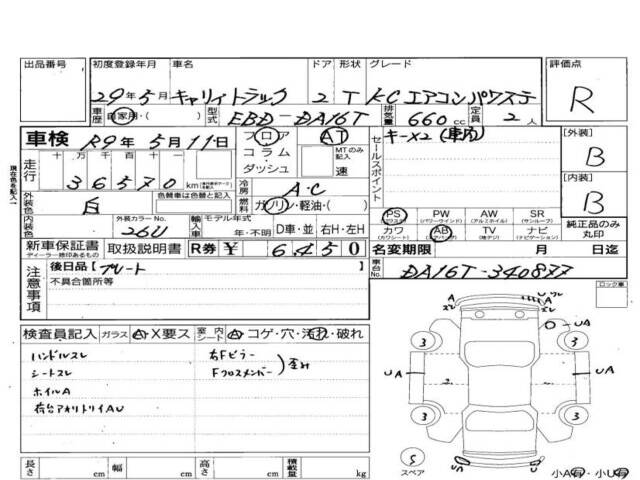 出品番号 初度登録年月 車名 ドア 形状 グレード 評価点
29年5月 キャリイトラック 2 T KC エアコンパワステ R
車歴 自家用・( ) 型式 EBD-DA16T 排気量 660 cc 定員 2人
車検 R9年5月11日 フロア AT セールスポイント キーX2(車内) [外装]
現在色を記入 走行 十 万 千 百 十 コラム・ MTのみ記入 B
36570 km ダッシュ 速 [内装]
外装色 白 色替車は色替と記入 冷房 A.C B
燃料 ガソリン・軽油・( ) PS PW AW SR 純正品のみ丸印
(パワステ) (パワーウインドウ) (アルミホイル) (サンルーフ)
内装色 外装カラーNo. 26U 輸入車 モデル年式 年・不明 D車・並 右H・左H カワ AB TV ナビ
(カワシート) (エアバッグ) (地デジ) (ナビゲーション)
新車保証書 取扱説明書 R券 ¥ 6450 名変期限 月 日迄
ディーラー捺印あるもの
車台No. DA16T-340877
注意事項 後日品 プレート ロック車
不具合箇所等
検査員記入 ガラス A・X要ス 室内シート A コゲ・穴・汚れ・破れ
ハンドルスレ 右Fピラー
シートスレ Fクロスメンバー 歪み
ホイルA
荷台アオリトリイAU
UA
UA UA
3 3
3 3
S
スペア
長さ cm 幅 cm 高さ cm 積載量 kg 小A有・小U有